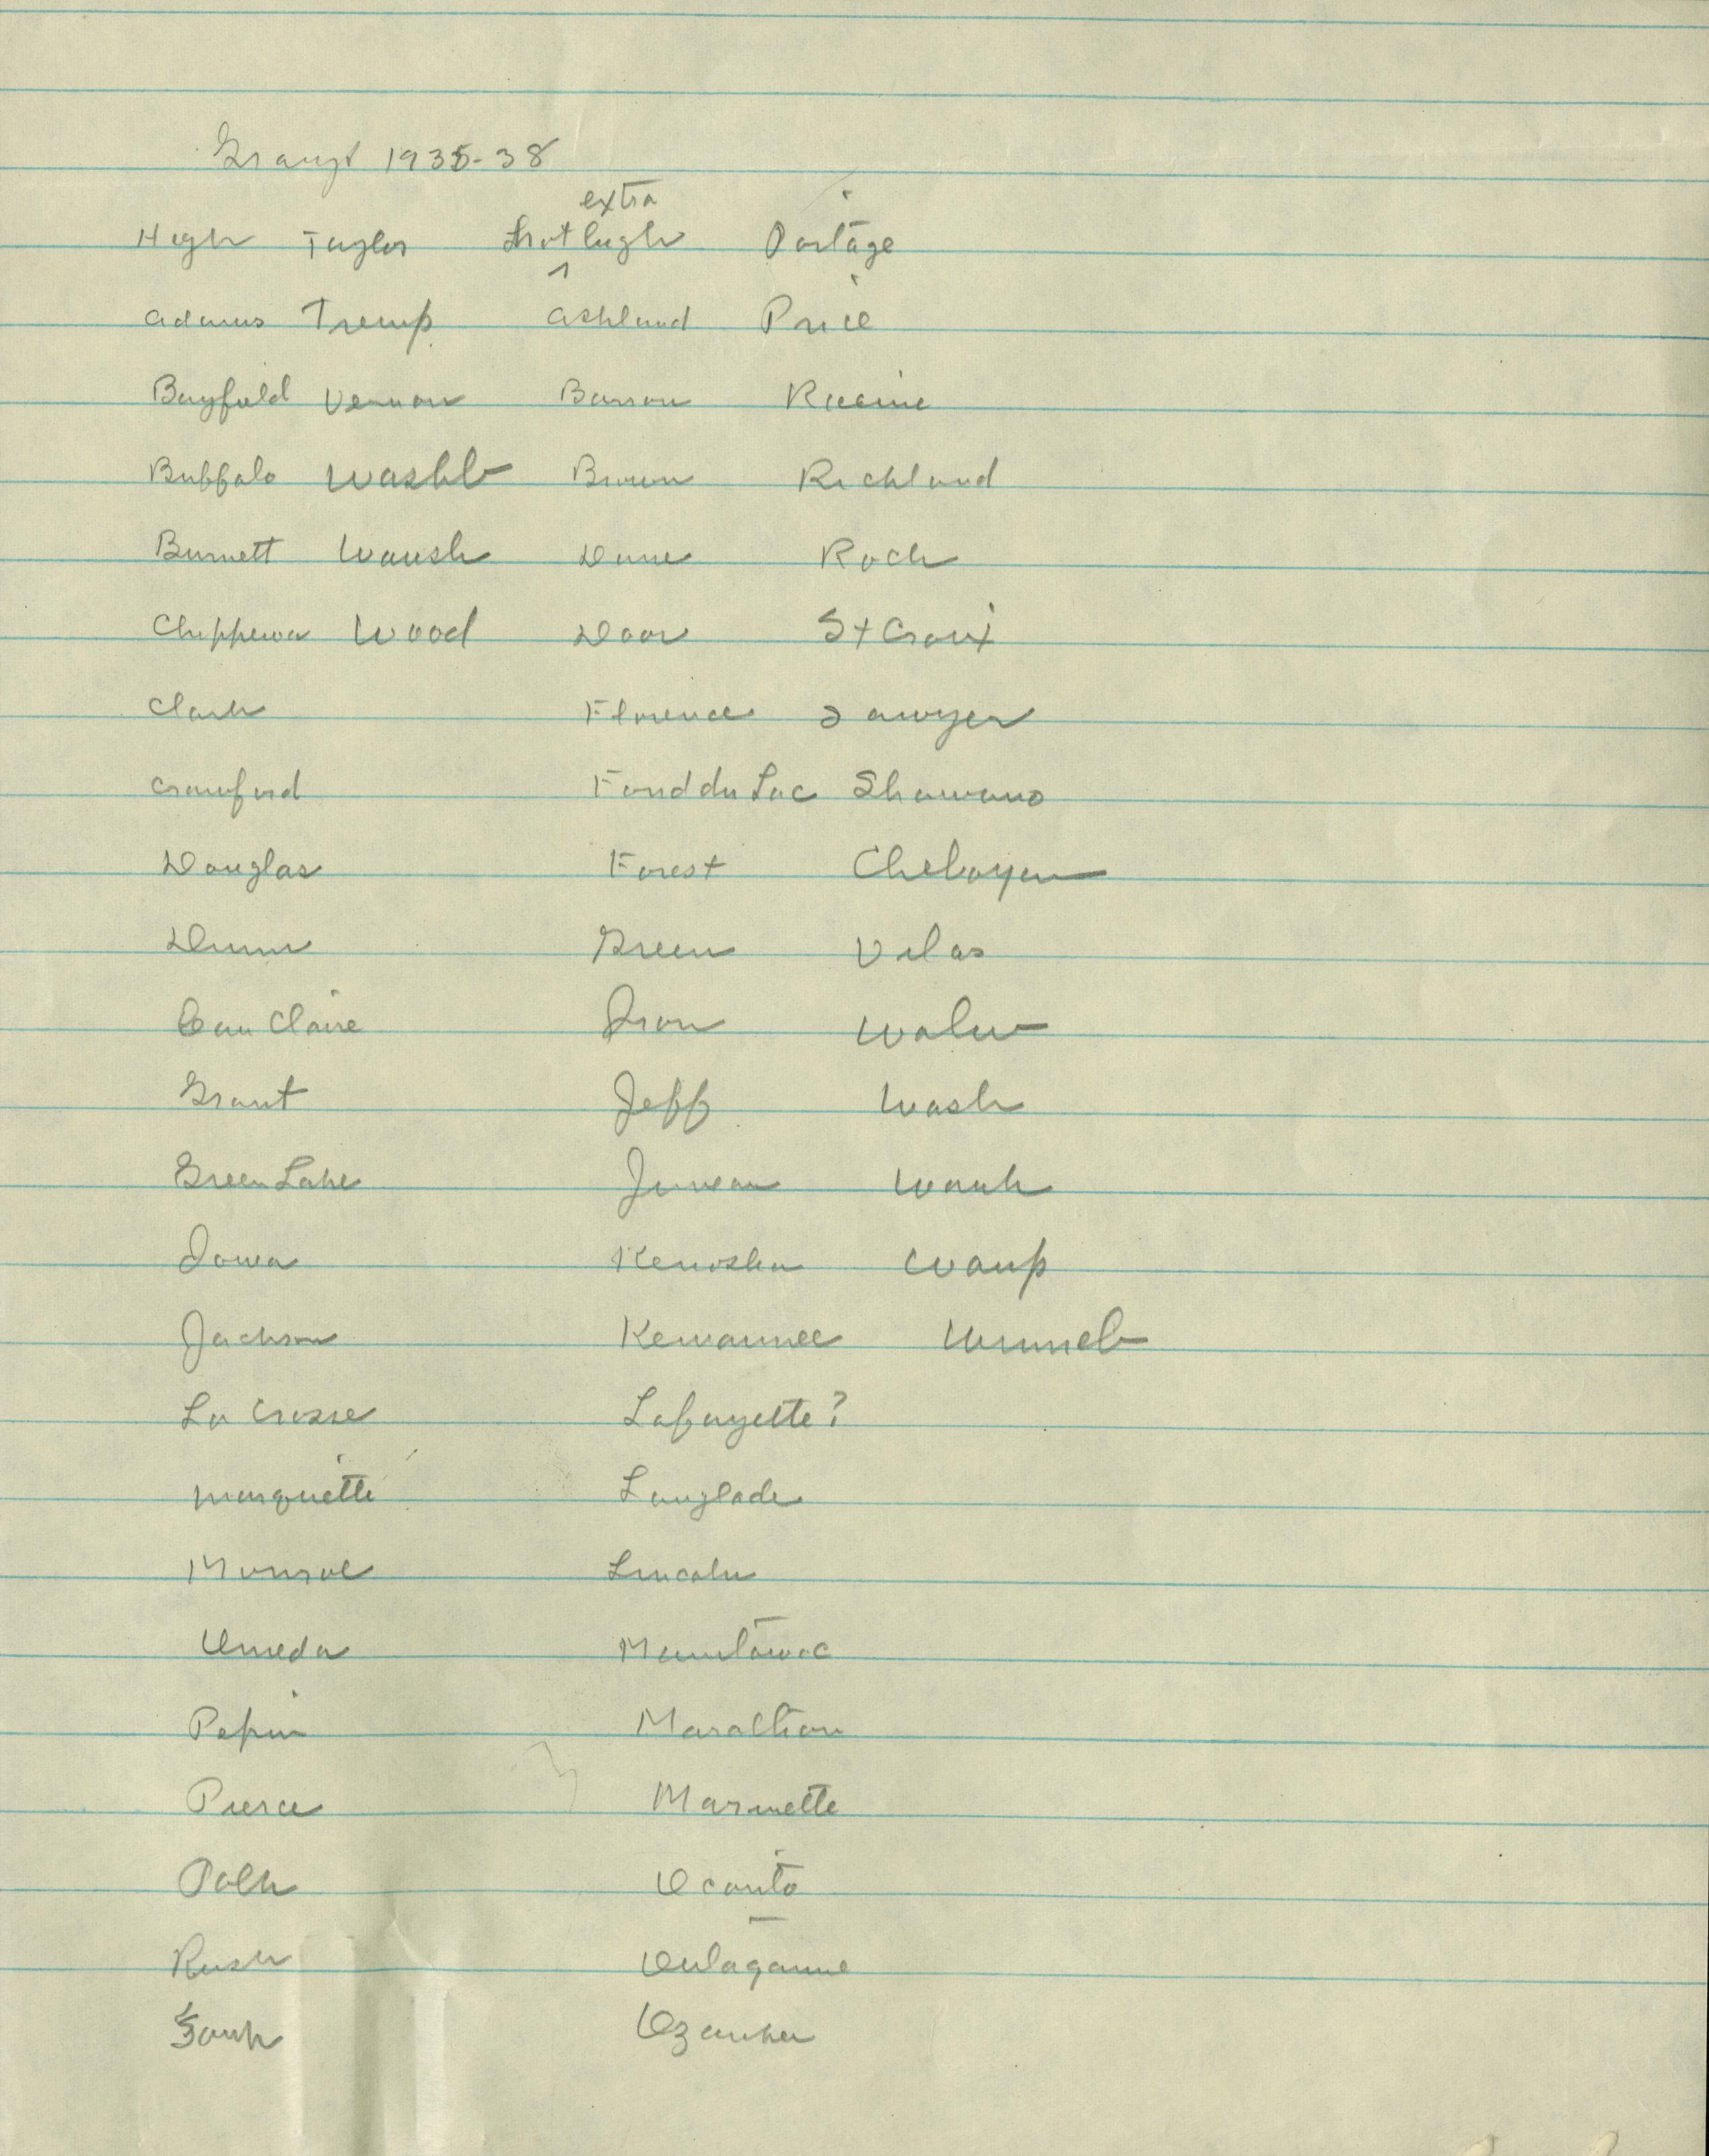 Grangt 1935-38
extra
High Taylor Not ^ high Portage
Adams Tremp. Ashland Price
Bayfield Vernon Barron Racine
Buffalo Washb Brown Richland
Burnett Waush Dane Rock
Chippewa Wood Door St Croix
Clark Florence Sawyer
Crawford Fond du Lac Shawano
Douglas Forest Cheboygan
Dunn Green Vilas
Eau Claire Iron Walw
Grant Jeff Wash
Green Lake Juneau Wauk
Iowa Kenosha Waup
Jackson Kewaunee Winneb
La Crosse Lafayette?
Marquette Langlade
Monroe Lincoln
Oneida Manitowoc
Pepin Marathon
Pierce Marinette
Polk Oconto
Rusk Outagamie
Sauk Ozaukee